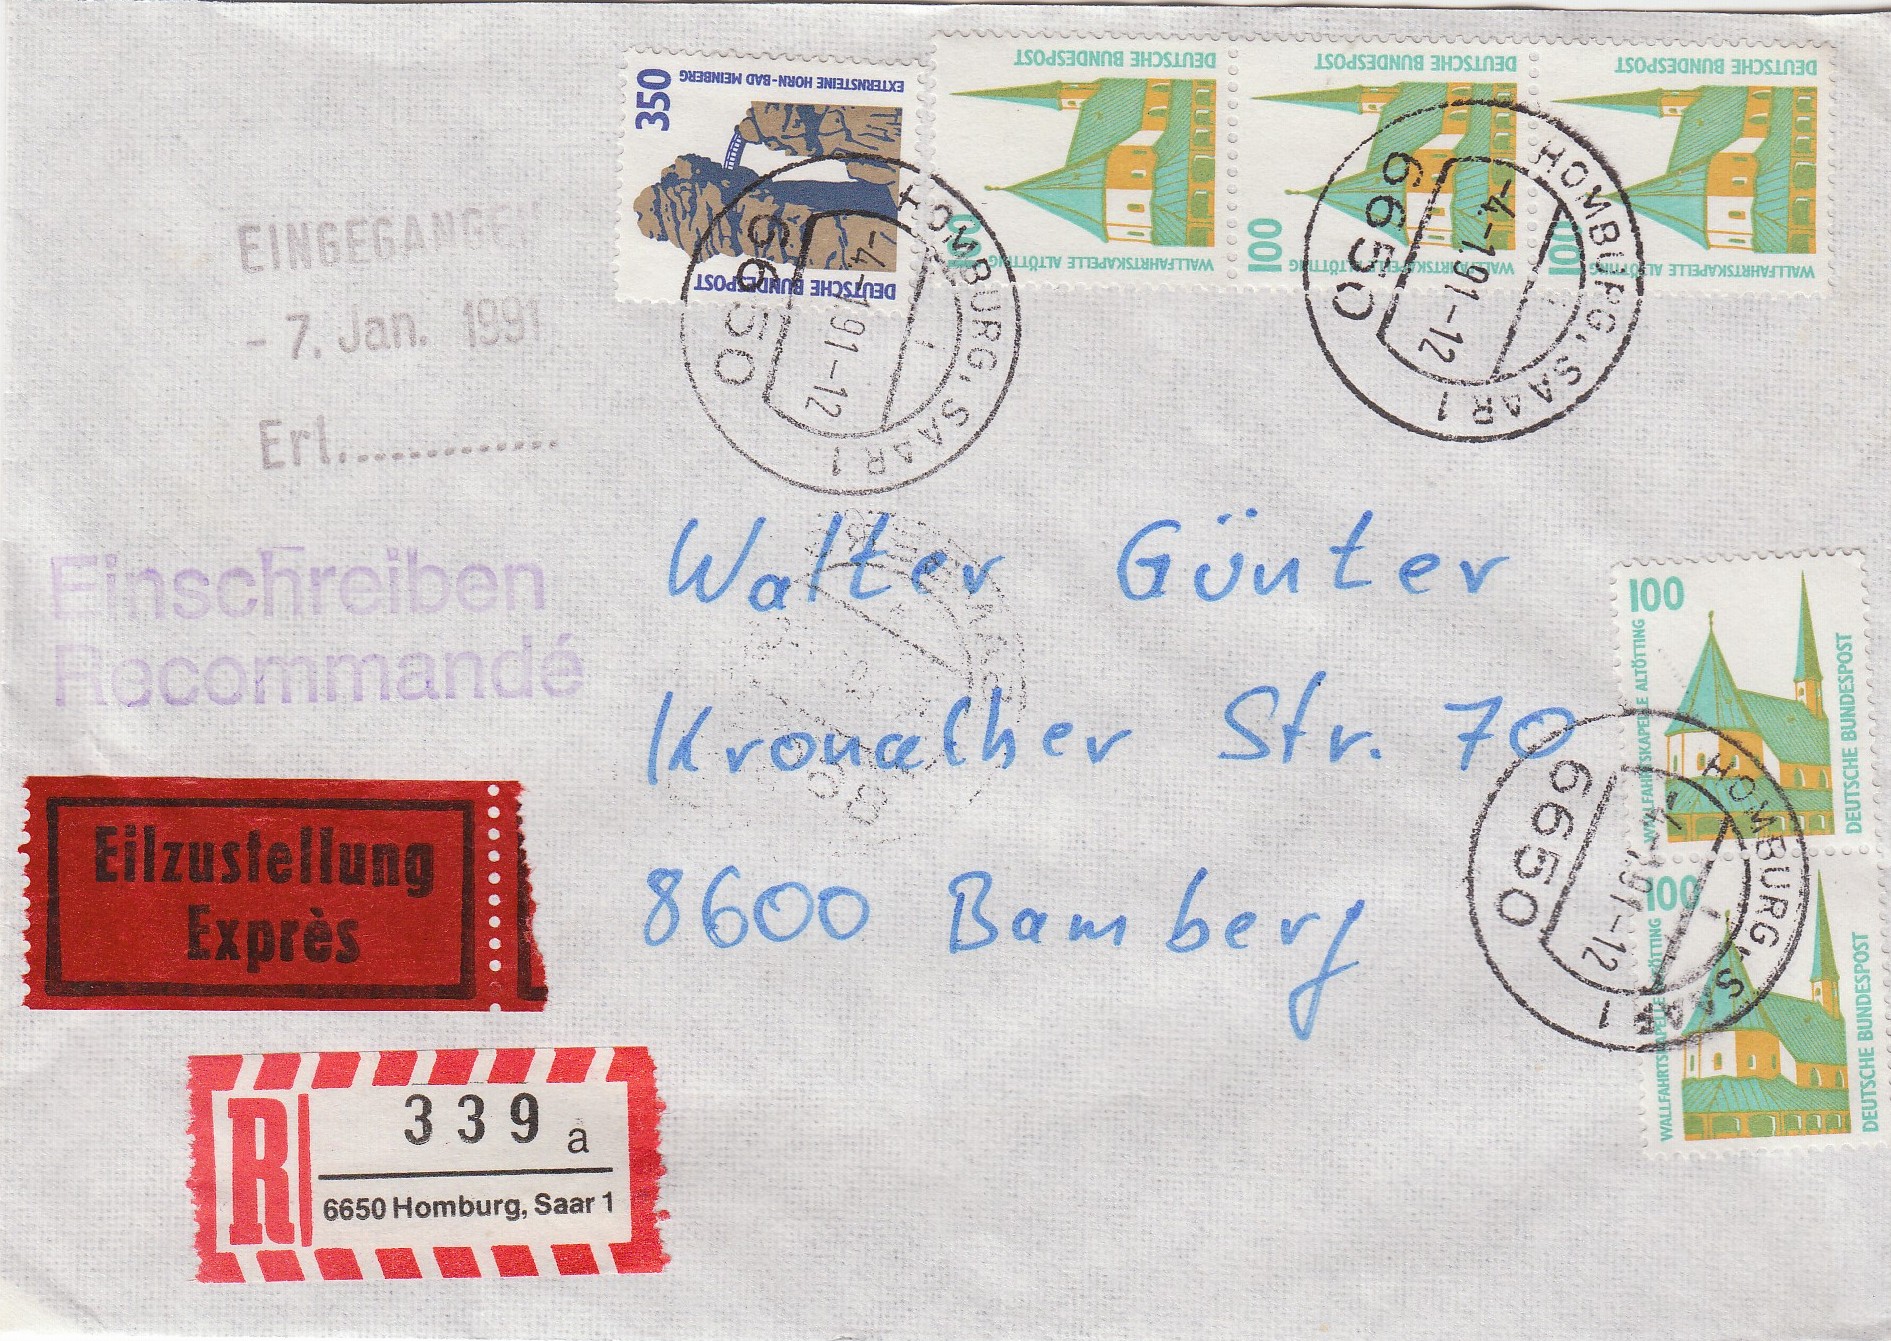 350
EXTERNSTEINE HORN-BAD MEINBERG
DEUTSCHE BUNDESPOST
DEUTSCHE BUNDESPOST
100
WALLFAHRTSKAPELLE ALTÖTTING
DEUTSCHE BUNDESPOST
100
WALLFAHRTSKAPELLE ALTÖTTING
DEUTSCHE BUNDESPOST
100
WALLFAHRTSKAPELLE ALTÖTTING
HOMBURG, SAAR 1
-4.-1.91-12
6650
HOMBURG, SAAR 1
-4.-1.91-12
6650
EINGEGANGEN
- 7. Jan. 1991
Erl..............
Einschreiben
Recommandé
Walter Günter
Kronacher Str. 70
8600 Bamberg
100
WALLFAHRTSKAPELLE ALTÖTTING
DEUTSCHE BUNDESPOST
100
WALLFAHRTSKAPELLE ALTÖTTING
DEUTSCHE BUNDESPOST
HOMBURG, SAAR 1
-4.-1.91-12
6650
Eilzustellung
Exprès
R
339 a
6650 Homburg, Saar 1